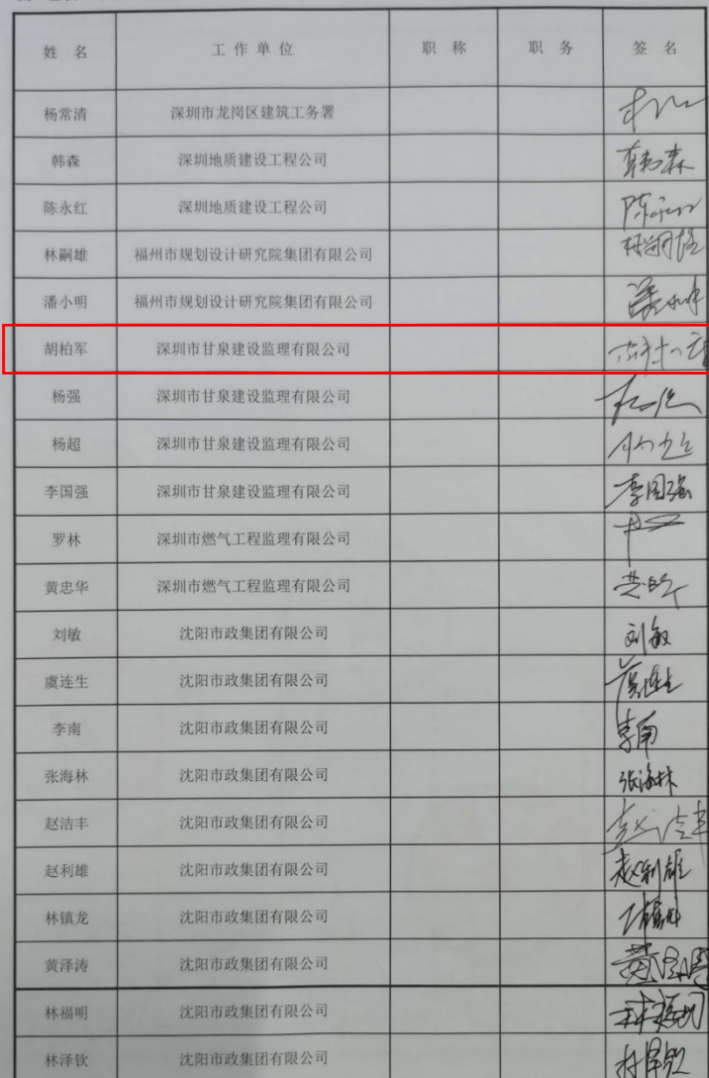 姓 名 工 作 单 位 职 称 职 务 签 名
杨常清 深圳市龙岗区建筑工务署
韩森 深圳地质建设工程公司 韩森
陈永红 深圳地质建设工程公司 陈永红
林嗣雄 福州市规划设计研究院集团有限公司 林嗣雄
潘小明 福州市规划设计研究院集团有限公司
胡柏军 深圳市甘泉建设监理有限公司
杨强 深圳市甘泉建设监理有限公司
杨超 深圳市甘泉建设监理有限公司
李国强 深圳市甘泉建设监理有限公司 李国强
罗林 深圳市燃气工程监理有限公司
黄忠华 深圳市燃气工程监理有限公司
刘敏 沈阳市政集团有限公司 刘敏
虞连生 沈阳市政集团有限公司 虞连生
李南 沈阳市政集团有限公司 李南
张海林 沈阳市政集团有限公司 张海林
赵洁丰 沈阳市政集团有限公司 赵洁丰
赵利雄 沈阳市政集团有限公司 赵利雄
林镇龙 沈阳市政集团有限公司
黄泽涛 沈阳市政集团有限公司 黄泽涛
林福明 沈阳市政集团有限公司 林福明
林泽钦 沈阳市政集团有限公司 林泽钦